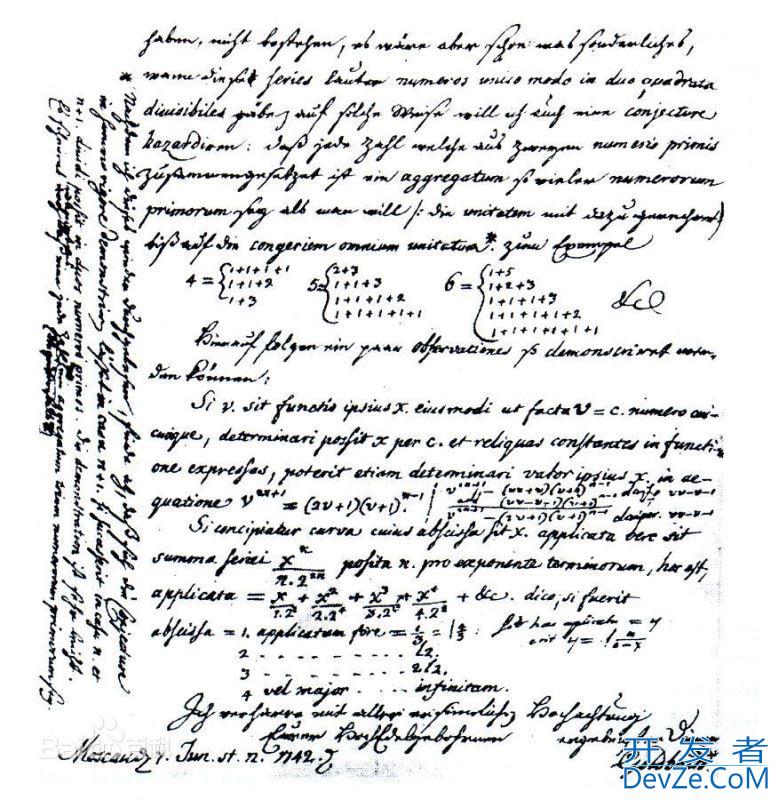 haben, nicht bestehen, es wäre aber schon was sonderliches,
wann dieses series lauter numeros unico modo in duo quadrata
divisibiles gäbe auf solche Weise will ich auch eine conjecture
hazardiren: daß jede Zahl welche aus zweyen numeris primis
zusammengesetzet ist ein aggregatum so vieler numerorum
primorum sey als man will (: die unitatem mit dazu gerechnet)
biß auf die congeriem omnium unitatum* zum Exempel
4 = { 1+1+1+1 5 = { 2+3 6 = { 1+5
1+1+2 1+1+3 1+2+3
1+3 1+1+1+2 1+1+1+3
1+1+1+1+1 1+1+1+1+2
1+1+1+1+1+1 &c
Hierauf folgen ein paar observationes so demonstriret wer-
den können:
Si v. sit functio ipsius x. eiusmodi ut facta v = c. numero cui-
cunque, determinari possit x per c. et reliquas constantes in functi-
one expressas, poterit etiam determinari valor ipsius x. in ae-
quatione v^{2n+1} = (2v+1)(v+1)^{n-1}
Si concipiatur curva cuius abscissa sit x. applicata vero sit
summa seriei x^n/n.2^{2n} posita n. pro exponente terminorum, hoc est,
applicata = x/1.2^2 + x^2/2.2^4 + x^3/3.2^6 + x^4/4.2^8 + &c. dico, si fuerit
abscissa = 1. applicatam fore = l 4/3
2 . . . . . . . l2.
3 . . . . . . . 2l2.
4 vel major . . . . infinitam.
Ich verharre mit aller ersinnlichen Hochachtung
Eurer Hochedelgebohrnen ergebenster Diener
Moscau 7. Jun. st. n. 1742. Goldbach
* Nachdem ich dieses wieder durchgelesen, finde ich, daß sich die conjecture
in summo rigore demonstriren lässet in casu n+1. si successerit in casu n. et
n+1. dividi possit in duos numeros primos. Die demonstration ist sehr leicht.
Es scheinet wenigstens, daß eine jede Zahl ein aggregatum trium numerorum primorum sey.
Baidu百科
开发者
DevZe.CoM